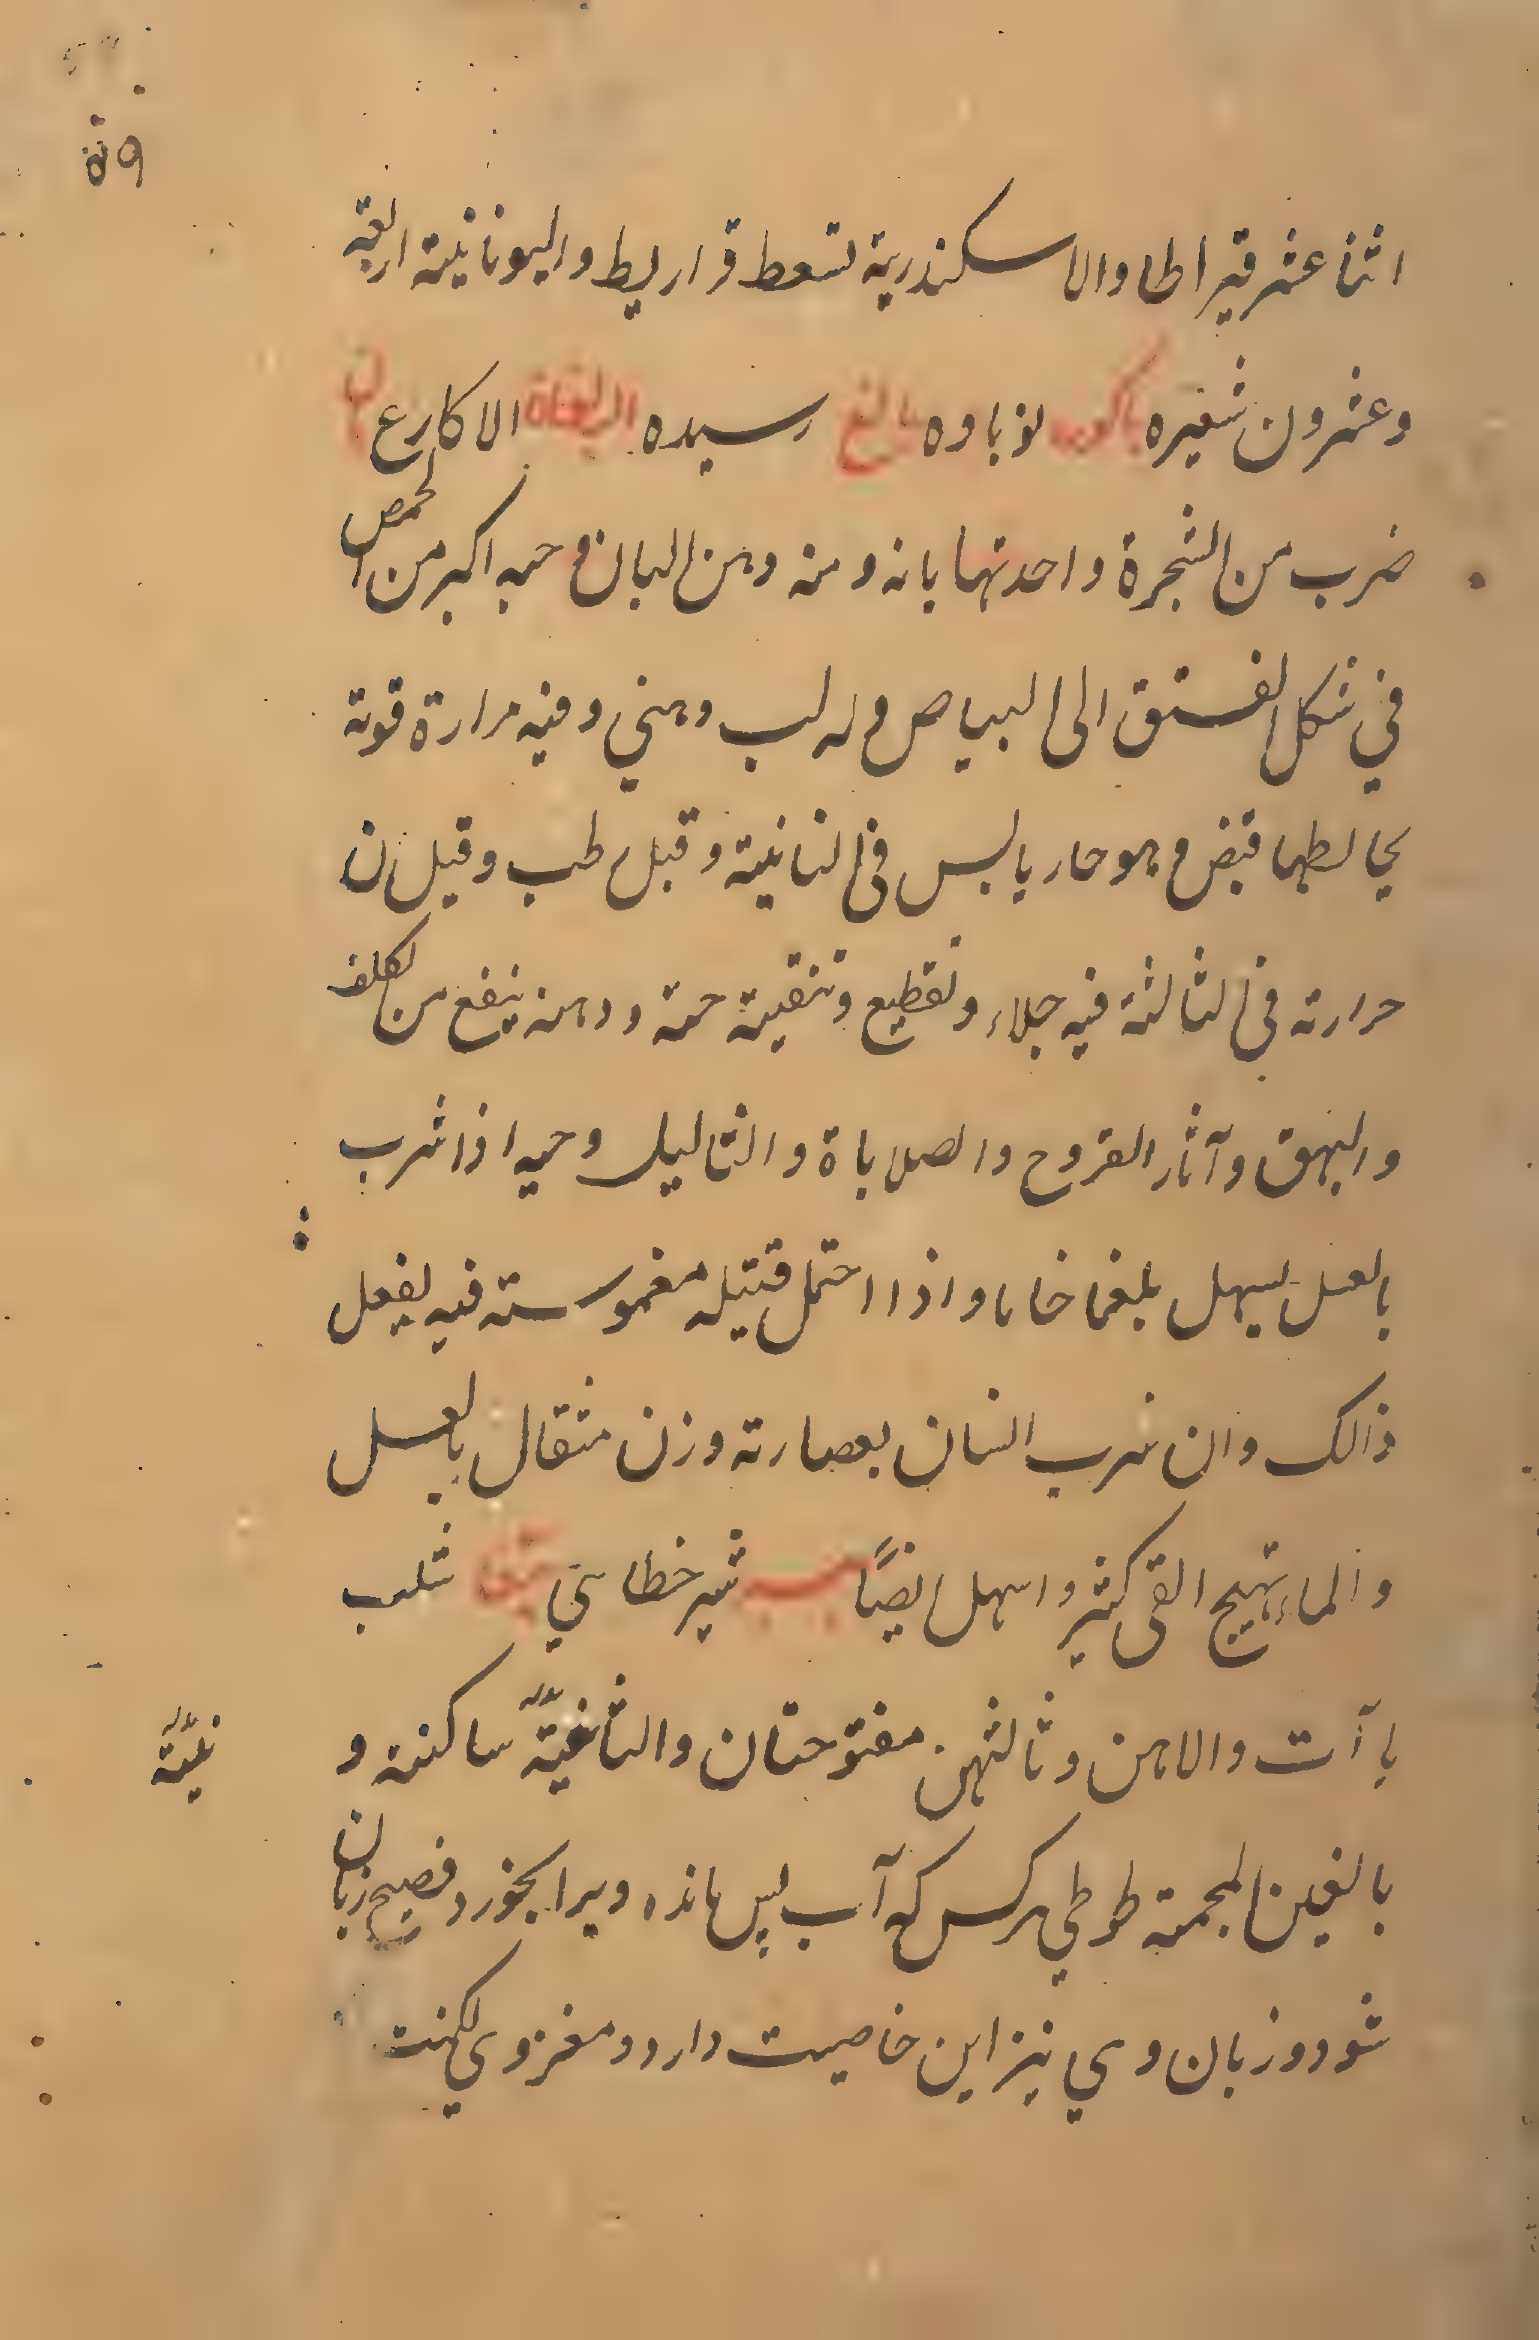 ٥٩
اثنا عشر قيراطا والاسكندرية تسعط قراريط واليونانية اربعة
وعشرون شعيره باكوره نوباوه بالغ رسيده الاكارع بان
ضرب من الشجرة واحدتها بانه ومنه دهن البان وحبه اكبر من الحمص
في شكل الفستق الى البياض وله لب دهني وفيه مرارة قوية
يخالطها قبض وهو حار يابس في الثانية وقيل رطب وقيل ان
حرارته في الثالثة فيه جلاء وتقطيع وتنقية حمة ودهنه ينفع من الكلف
والبهق وآثار القروح والصلاباة والثاليل وحبه اذا شرب
بالعسل يسهل بلغما خاما واذا احتمل فتيله مغموسته فيه يفعل
ذالك وان شرب انسان بعصارته وزن مثقال بالعسل
والماء يهيج القى كثير واسهل ايضًا ببر شير خطائي ببغا بثلث
باآت والاهن وثالثهن مفتوحتان والثانيّة ساكنة و
نيّة
بالغين المعجمة طوطي هركس كه آب پس مانده ويرا بخورد فصيح زبان
شود وزبان وي نيز اين خاصيت دارد ومغز وي لكنت